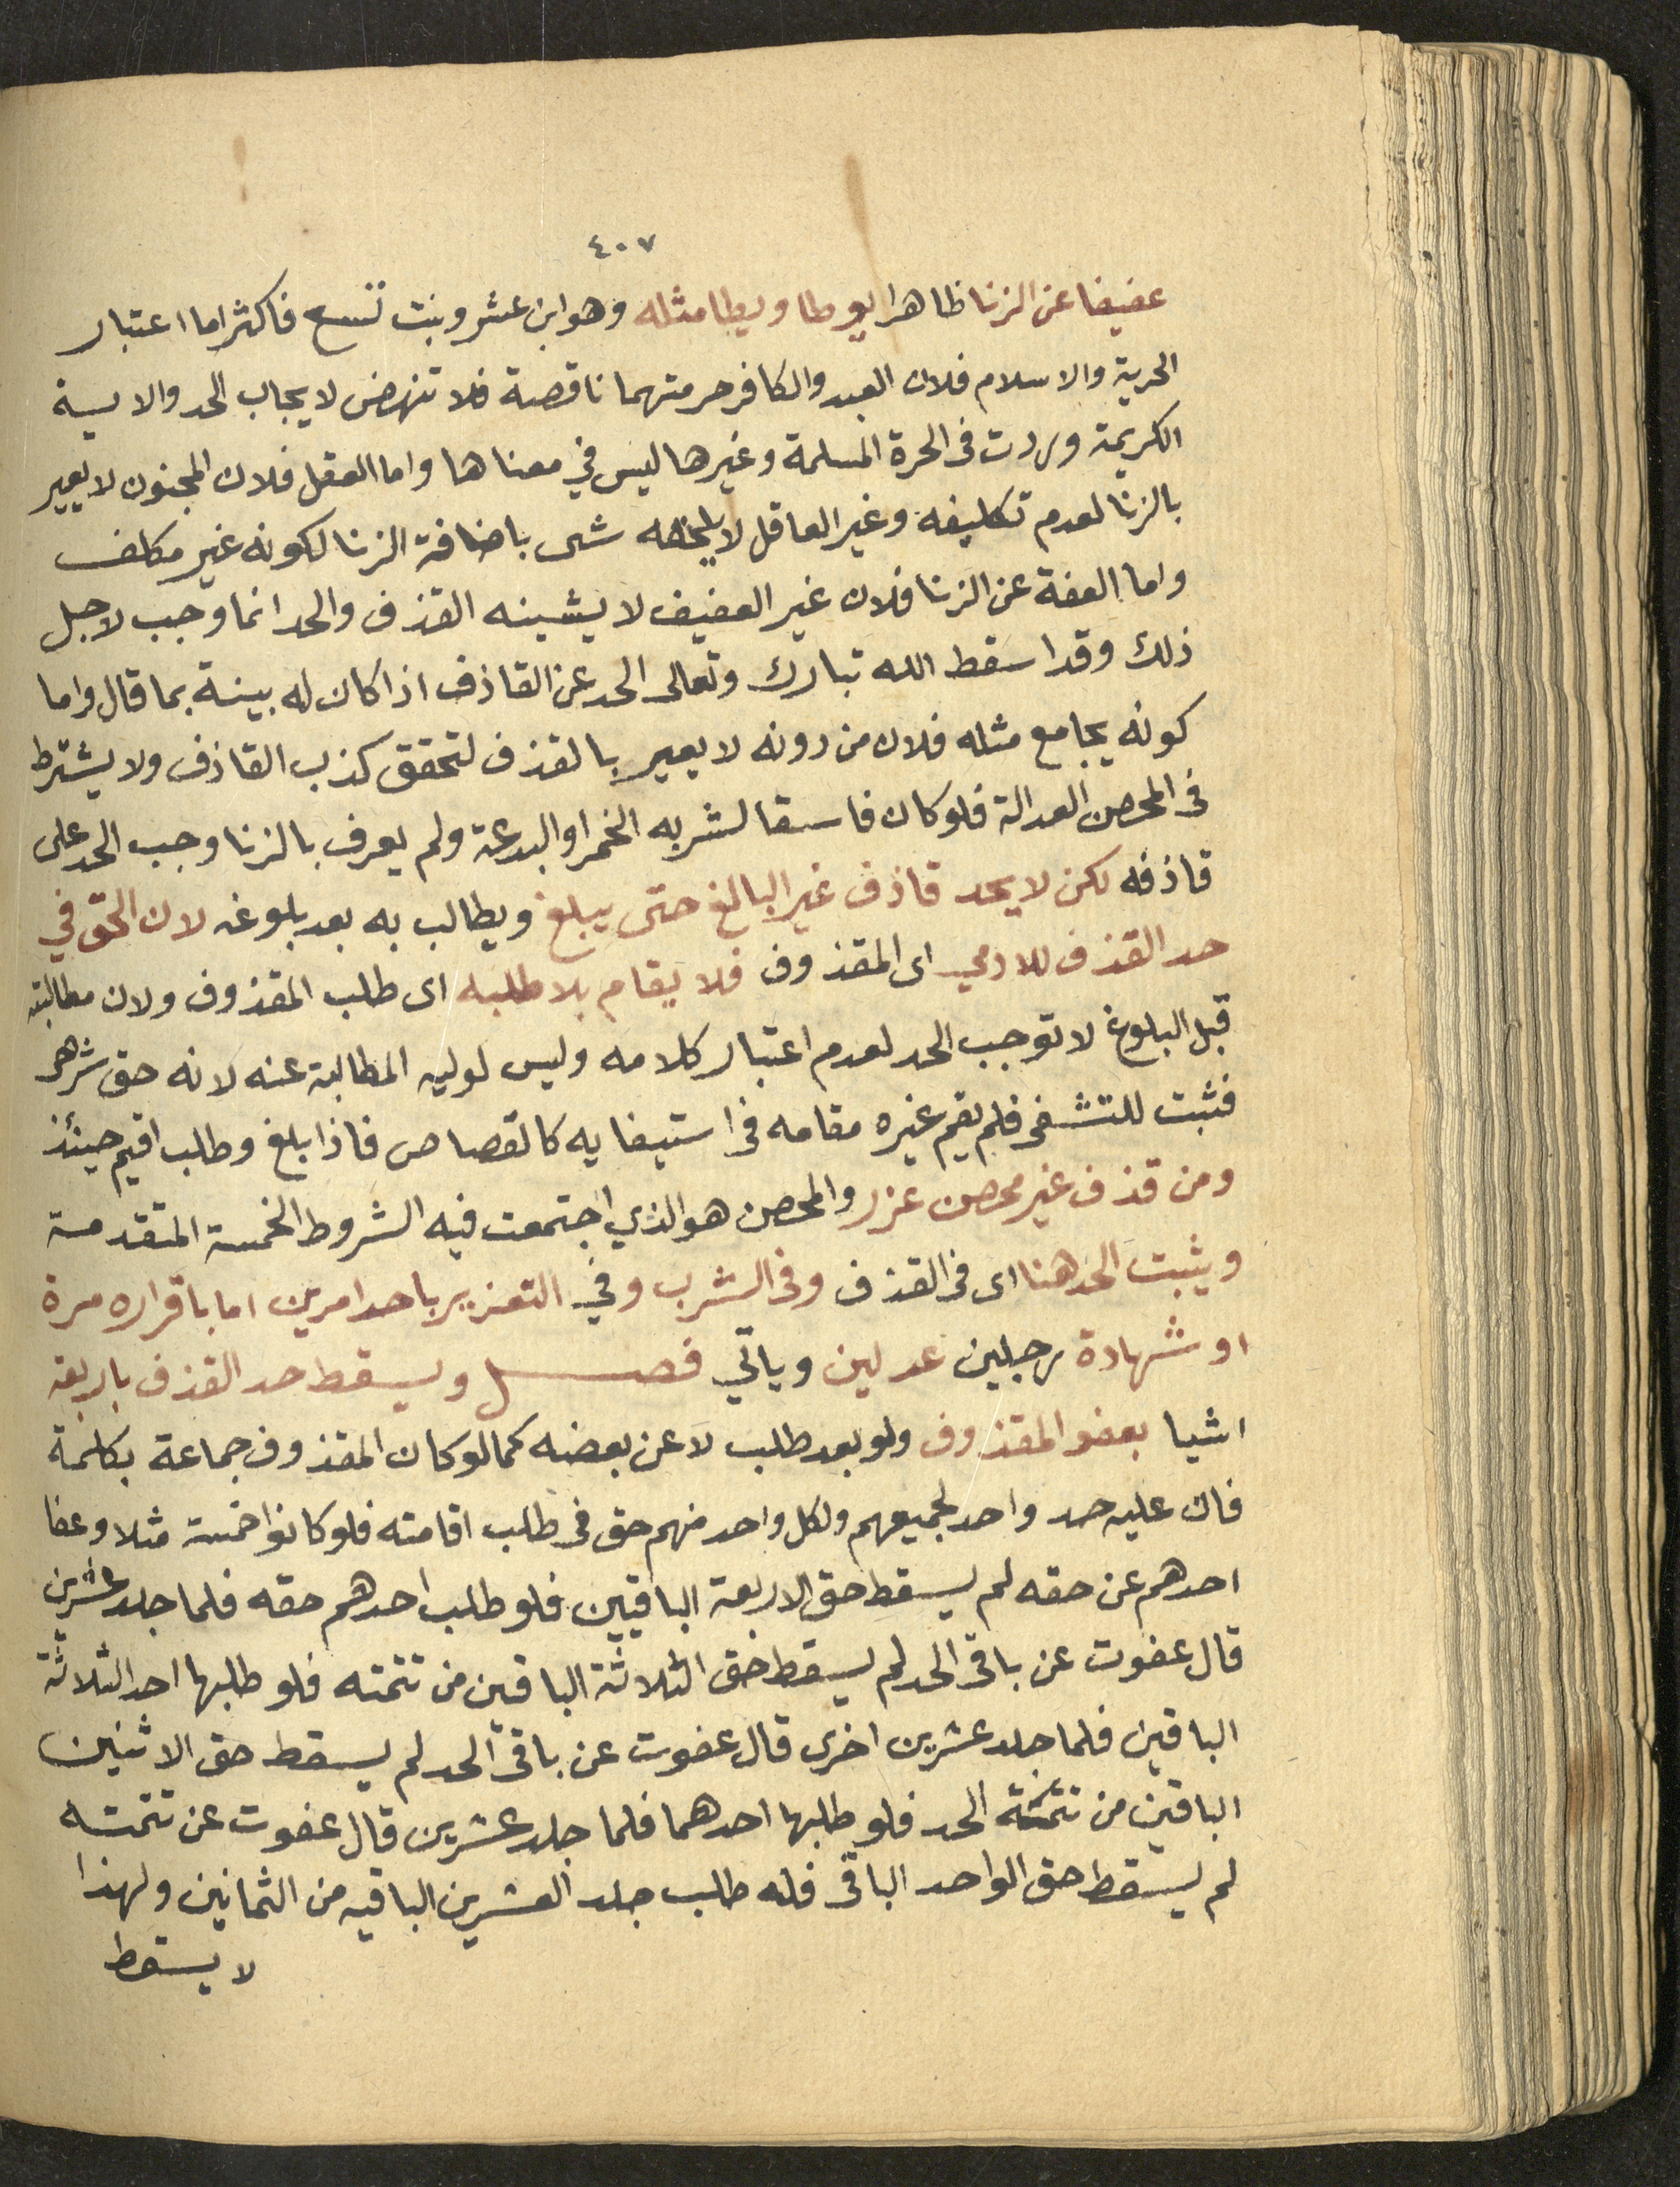 ٤٠٧
عفيفا عن الزنا ظاهرا يوطا ويطا مثله وهو ابن عشر وبنت تسع فاكثر اما اعتبار
الحرية والاسلام فلان العبد والكافر حرمتهما ناقصة فلا تنهض لايجاب الحد والاية
الكريمة وردت في الحرة المسلمة وغيرها ليس في معناها واما العقل فلان المجنون لا يعير
بالزنا لعدم تكليفه وغير العاقل لا يلحقه شى باضافة الزنا لكونه غير مكلف
واما العفة عن الزنا فلان غير العفيف لا يشينه القذف والحد انما وجب لاجل
ذلك وقد اسقط الله تبارك وتعالى الحد عن القاذف اذا كان له بينة بما قال واما
كونه يجامع مثله فلان من دونه لا يعير بالقذف لتحقق كذب القاذف ولا يشترط
في المحصن العدالة فلو كان فاسقا لشربه الخمر او البدعة ولم يعرف بالزنا وجب الحد على
قاذفه لكن لا يحد قاذف غير البالغ حتى يبلغ ويطالب به بعد بلوغه لان الحق في
حد القذف للادمي اى المقذوف فلا يقام بلا طلبه اى طلب المقذوف ولان مطالبته
قبل البلوغ لا توجب الحد لعدم اعتبار كلامه وليس لوليه المطالبة عنه لانه حق
فثبت للتشفى فلم يقم غيره مقامه في استيفايه كالقصاص فاذا بلغ وطلب اقيم حينئذ
ومن قذف غير محصن عزر والمحصن هو الذي اجتمعت فيه الشروط الخمسة المتقدمة
ويثبت الحد هنا اى في القذف وفي الشرب وفي التعزير باحد امرين اما باقراره مرة
او شهادة رجلين عدلين وياتي فصل ويسقط حد القذف باربعة
اشيا بعفو المقذوف ولو بعد طلب لا عن بعضه كما لو كان المقذوف جماعة بكلمة
فان عليه حد واحد لجميعهم ولكل واحد منهم حق في طلب اقامته فلو كانوا خمسة مثلا وعفا
احدهم عن حقه لم يسقط حق الاربعة الباقيين فلو طلب احدهم حقه فلما جلد عشرين
قال عفوت عن باقى الحد لم يسقط حق الثلاثة الباقين من تتمته فلو طلبها احد الثلاثة
الباقين فلما جلد عشرين اخرى قال عفوت عن باقى الحد لم يسقط حق الاثنين
الباقين من تتمتة الحد فلو طلبها احدهما فلما جلد عشرين قال عفوت عن تتمته
لم يسقط حق الواحد الباقى فله طلب جلد العشرين الباقيه من الثمانين ولهذا
لا يسقط